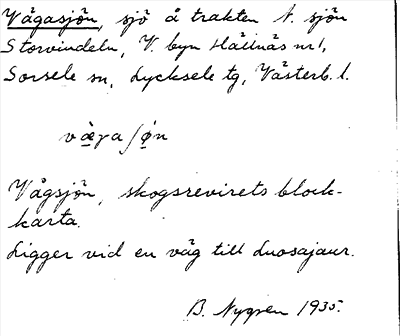 Vägasjön, sjö å trakten N. sjön
Storvindeln, V. byn Hällnäs nr 1,
Sorsele sn, Lycksele tg, Västerb. l.
væ̀gaʃø̣n
Vägsjön, skogsrevirets block-
karta.
Ligger vid en väg till Luosajaur.
B. Nygren 1935.